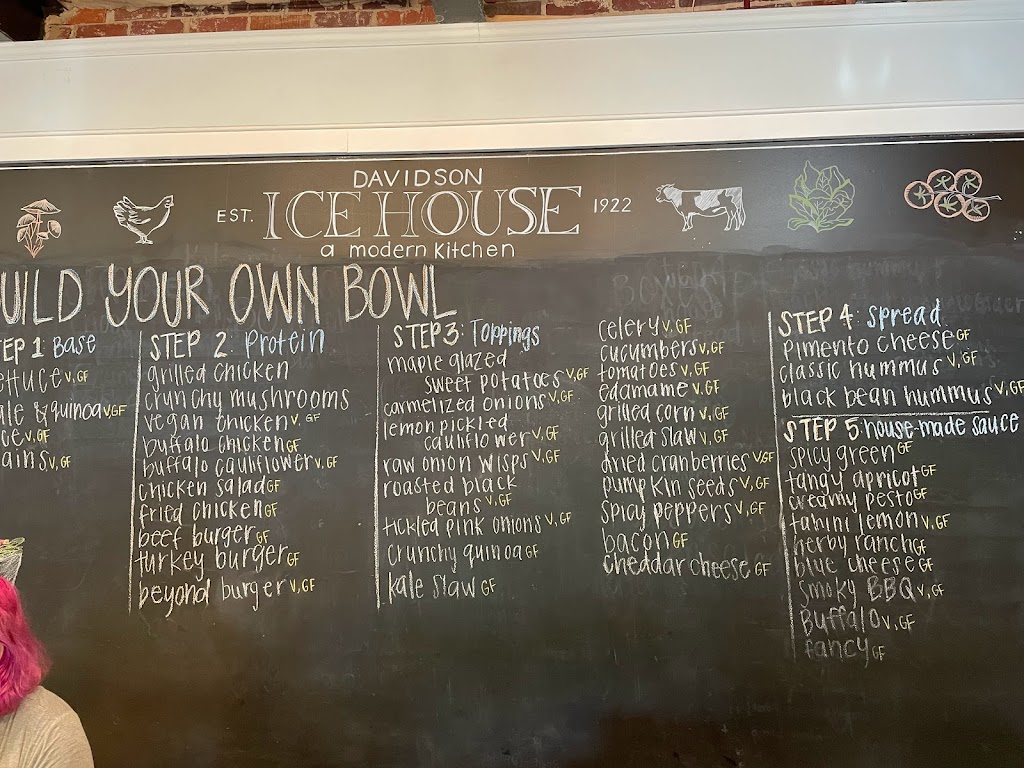 DAVIDSON
EST. ICE HOUSE 1922
a modern Kitchen
UILD YOUR OWN BOWL
TEP 1: Base
ettuce V, GF
ale & quinoa V, GF
ce V, GF
ains V, GF
STEP 2: Protein
grilled chicken
crunchy mushrooms
vegan chicken V GF
buffalo chicken GF
buffalo cauliflower V, GF
chicken salad GF
fried chicken GF
beef burger GF
turkey burger GF
beyond burger V, GF
STEP 3: Toppings
maple glazed
sweet potatoes V, GF
carmelized onions V, GF
lemon pickled
cauliflower V, GF
raw onion wisps V, GF
roasted black
beans V, GF
tickled pink onions V, GF
crunchy quinoa GF
kale slaw GF
celery V, GF
cucumbers V, GF
tomatoes V, GF
edamame V, GF
grilled corn V, GF
grilled slaw V, GF
dried cranberries V, GF
pumpkin seeds V, GF
spicy peppers V, GF
bacon GF
cheddar cheese GF
STEP 4: spread
pimento cheese GF
classic hummus V, GF
black bean hummus V, GF
STEP 5 house-made sauce
spicy green GF
tangy apricot GF
creamy pesto GF
tahini lemon V, GF
herby ranch GF
blue cheese GF
smoky BBQ V, GF
Buffalo V, GF
fancy GF